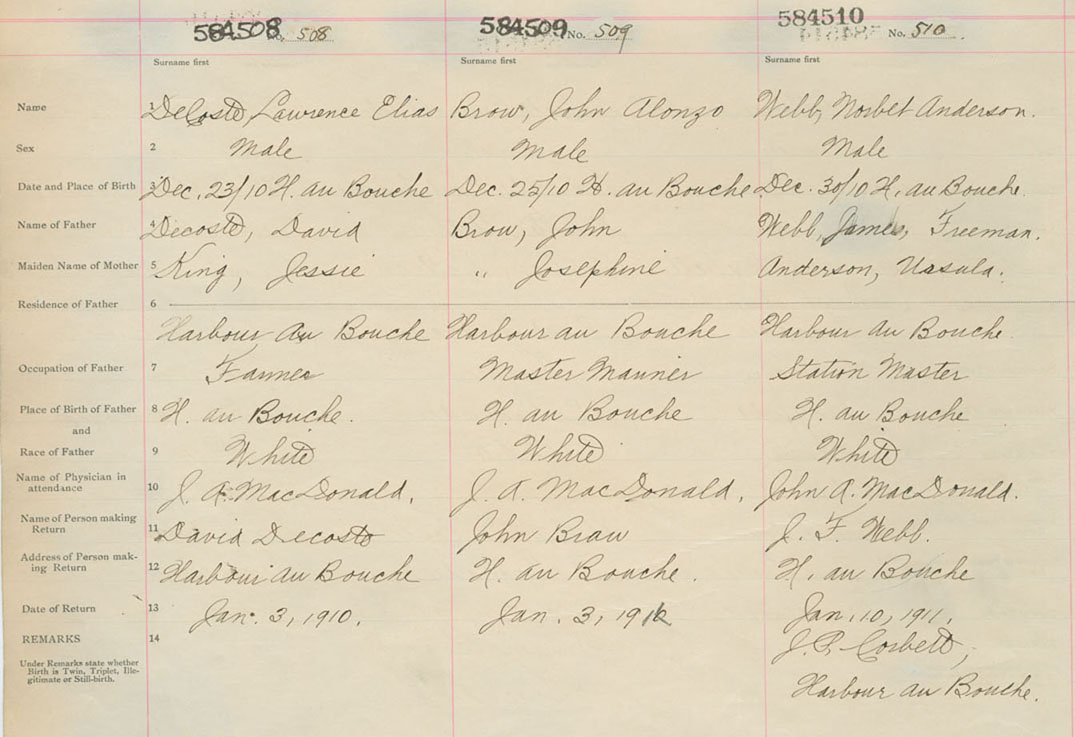 584508 No. 508 584509 No. 509 584510 No. 510.
Surname first Surname first Surname first
Name 1 DeCoste, Lawrence Elias Brow, John Alonzo Webb, Norbet Anderson.
Sex 2 Male Male Male
Date and Place of Birth 3 Dec. 23/10 H. au Bouche Dec. 25/10 H. au Bouche Dec. 30/10 H. au Bouche.
Name of Father 4 Decoste, David Brow, John Webb, James, Freeman.
Maiden Name of Mother 5 King, Jessie " Josephine Anderson, Ursula.
Residence of Father 6
Harbour au Bouche Harbour au Bouche Harbour au Bouche.
Occupation of Father 7 Farmer Master Mariner Station Master
Place of Birth of Father 8 H. au Bouche. H. au Bouche H. au Bouche
and
Race of Father 9 White White White
Name of Physician in
attendance 10 J. A. MacDonald. J. A. MacDonald. John A. MacDonald.
Name of Person making
Return 11 David Decoste John Brow J. F. Webb.
Address of Person mak-
ing Return 12 Harbour au Bouche H. au Bouche. H. au Bouche
Date of Return 13 Jan. 3, 1910. Jan. 3, 1911 Jan. 10, 1911.
REMARKS 14 J. P. Corbett,
Under Remarks state whether
Birth is Twin, Triplet, Ille-
gitimate or Still-birth.
Harbour au Bouche.